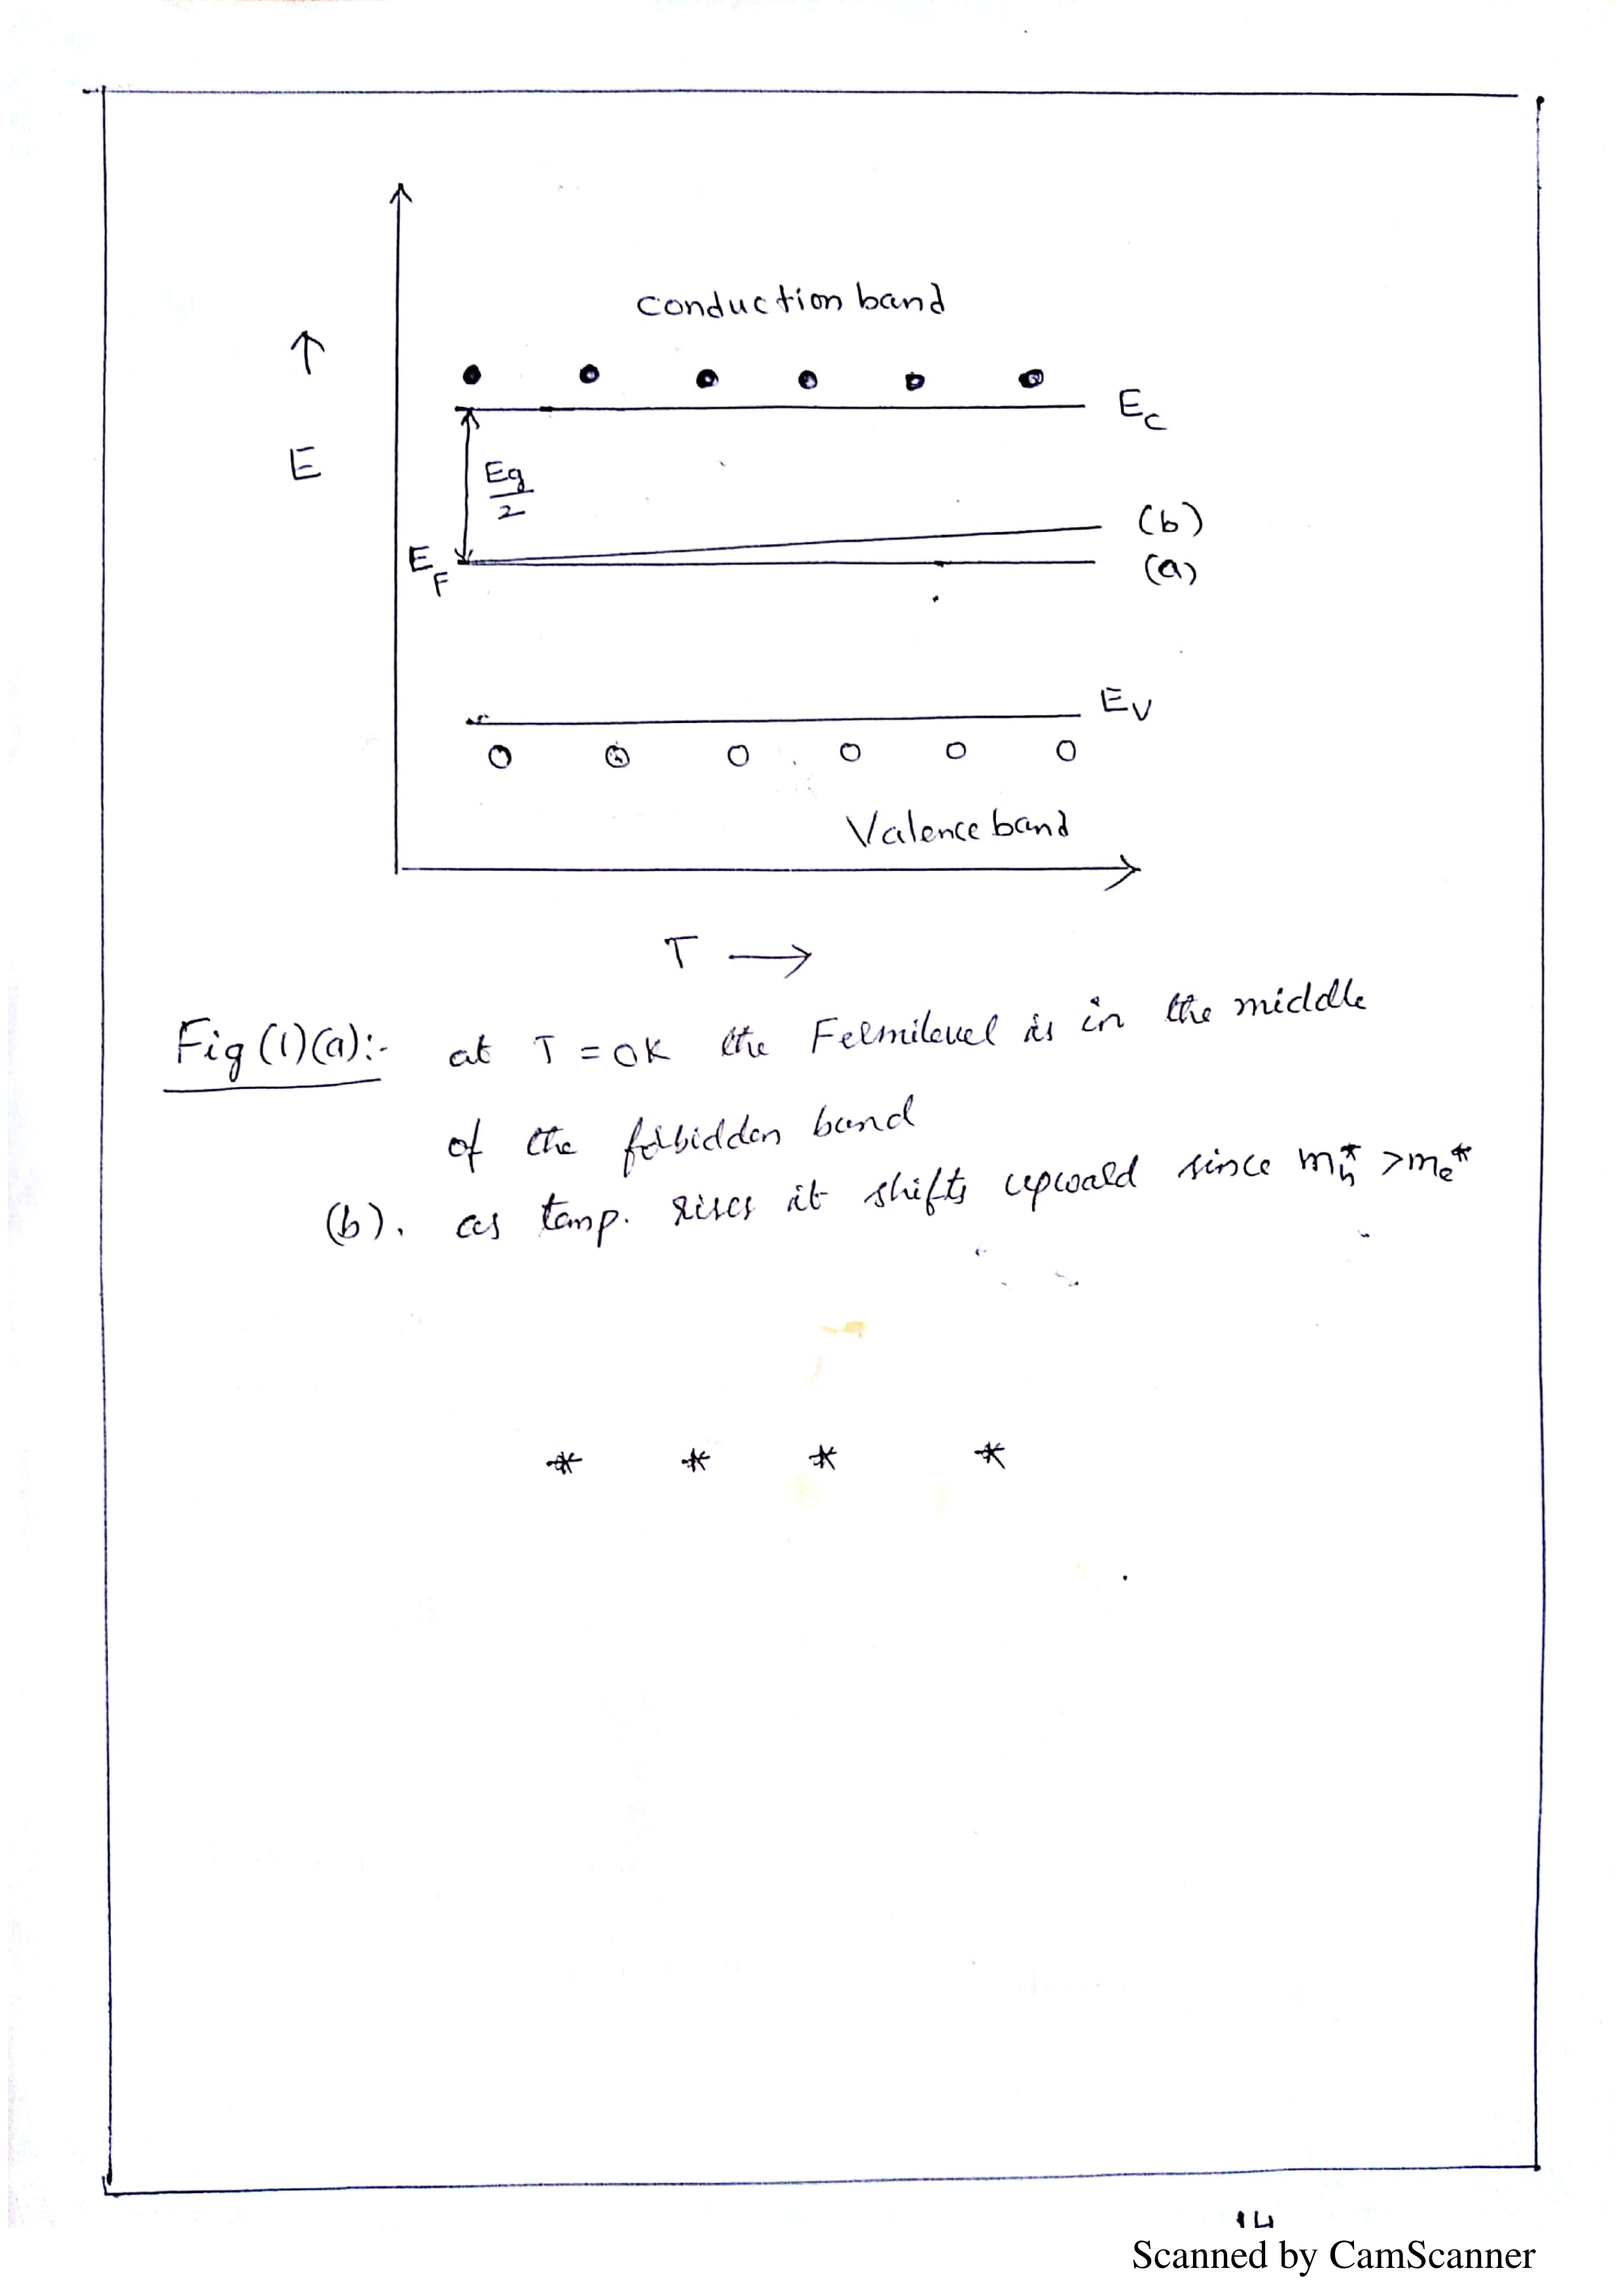 conduction band
↑
E
E_C
Eg/2
(b)
E_F
(a)
E_V
Valence band
T →
Fig (1)(a):- at T = 0K the Fermilevel is in the middle
of the forbidden band
(b). as temp. rises it shifts upward since m_h* > m_e*
* * * *
14
Scanned by CamScanner